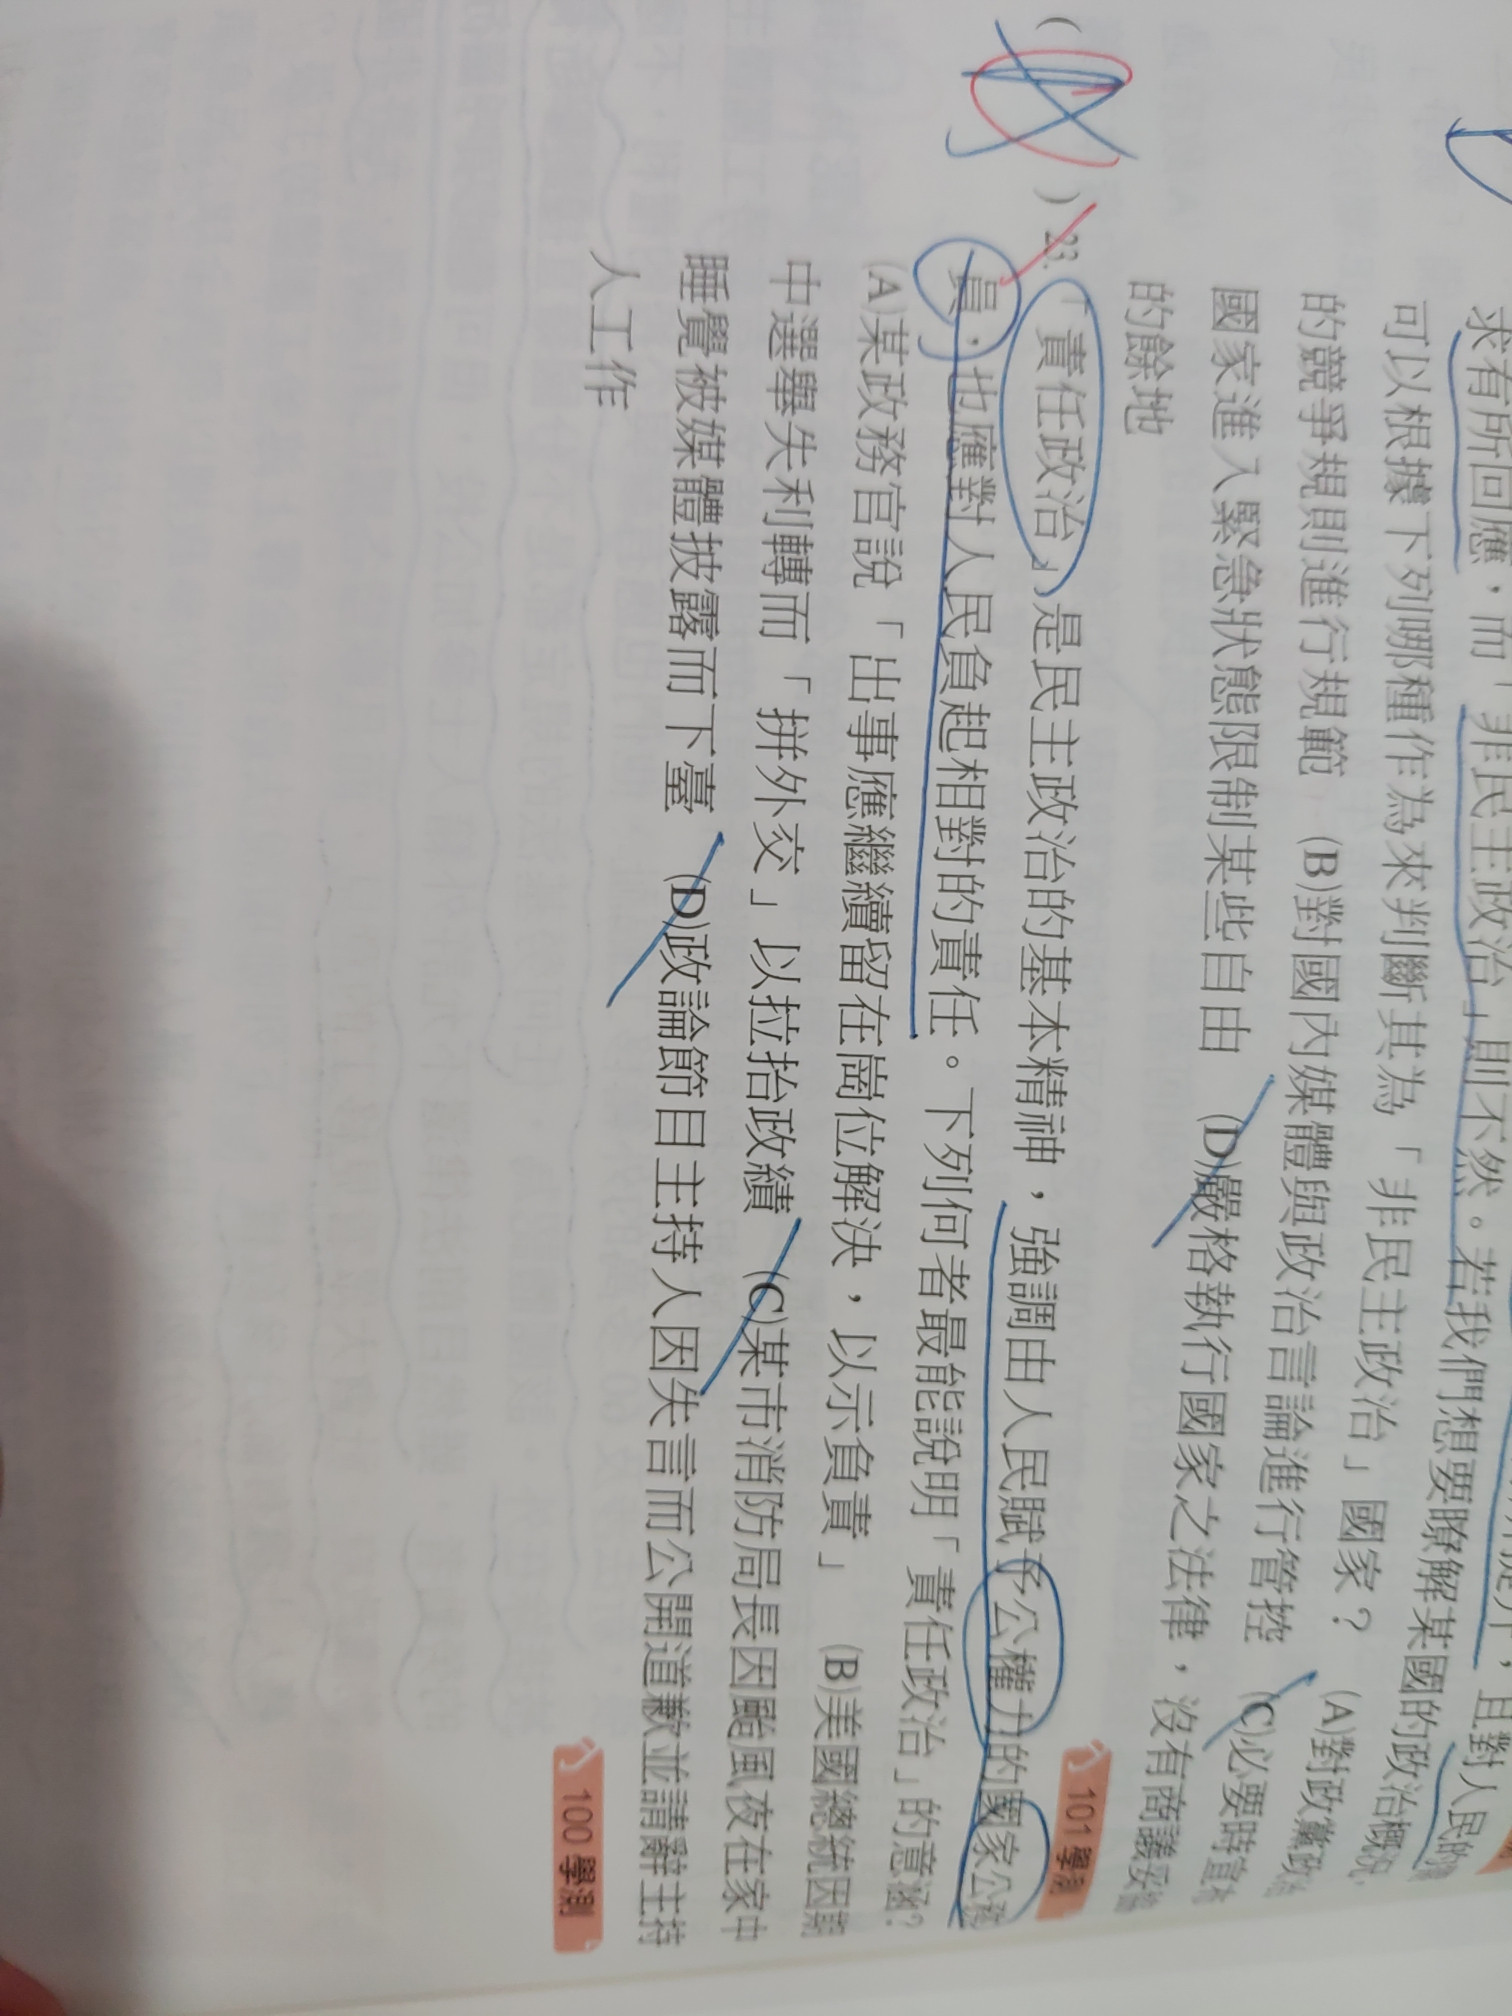 求有所回應，而「非民主政治」則不然。若我們想要瞭解某國的政治概況，
可以根據下列哪種作為來判斷其為「非民主政治」國家？ (A)對政黨政治
的競爭規則進行規範 (B)對國內媒體與政治言論進行管控 (C)必要時宣布
國家進入緊急狀態限制某些自由 (D)嚴格執行國家之法律，沒有商議妥協
的餘地
101 學測
( )23.「責任政治」是民主政治的基本精神，強調由人民賦予公權力的國家公務
員，也應對人民負起相對的責任。下列何者最能說明「責任政治」的意涵？
(A)某政務官說「出事應繼續留在崗位解決，以示負責」 (B)美國總統因期
中選舉失利轉而「拼外交」以拉抬政績 (C)某市消防局長因颱風夜在家中
睡覺被媒體披露而下臺 (D)政論節目主持人因失言而公開道歉並請辭主持
人工作
100 學測